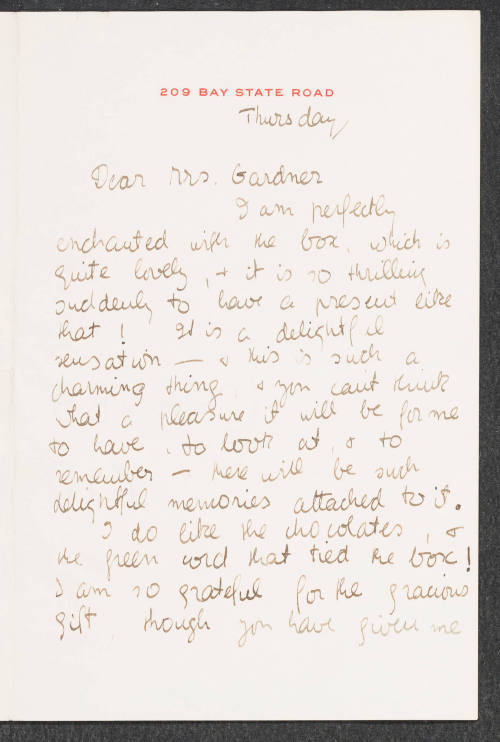 209 BAY STATE ROAD
Thursday
Dear Mrs. Gardner
I am perfectly
enchanted with the box, which is
quite lovely, & it is so thrilling
suddenly to have a present like
that! It is a delightful
sensation — & this is such a
charming thing, & you can't think
what a pleasure it will be for me
to have, to look at, & to
remember — there will be such
delightful memories attached to it.
I do like the chocolates, &
the green cord that tied the box!
I am so grateful for the gracious
gift, though you have given me